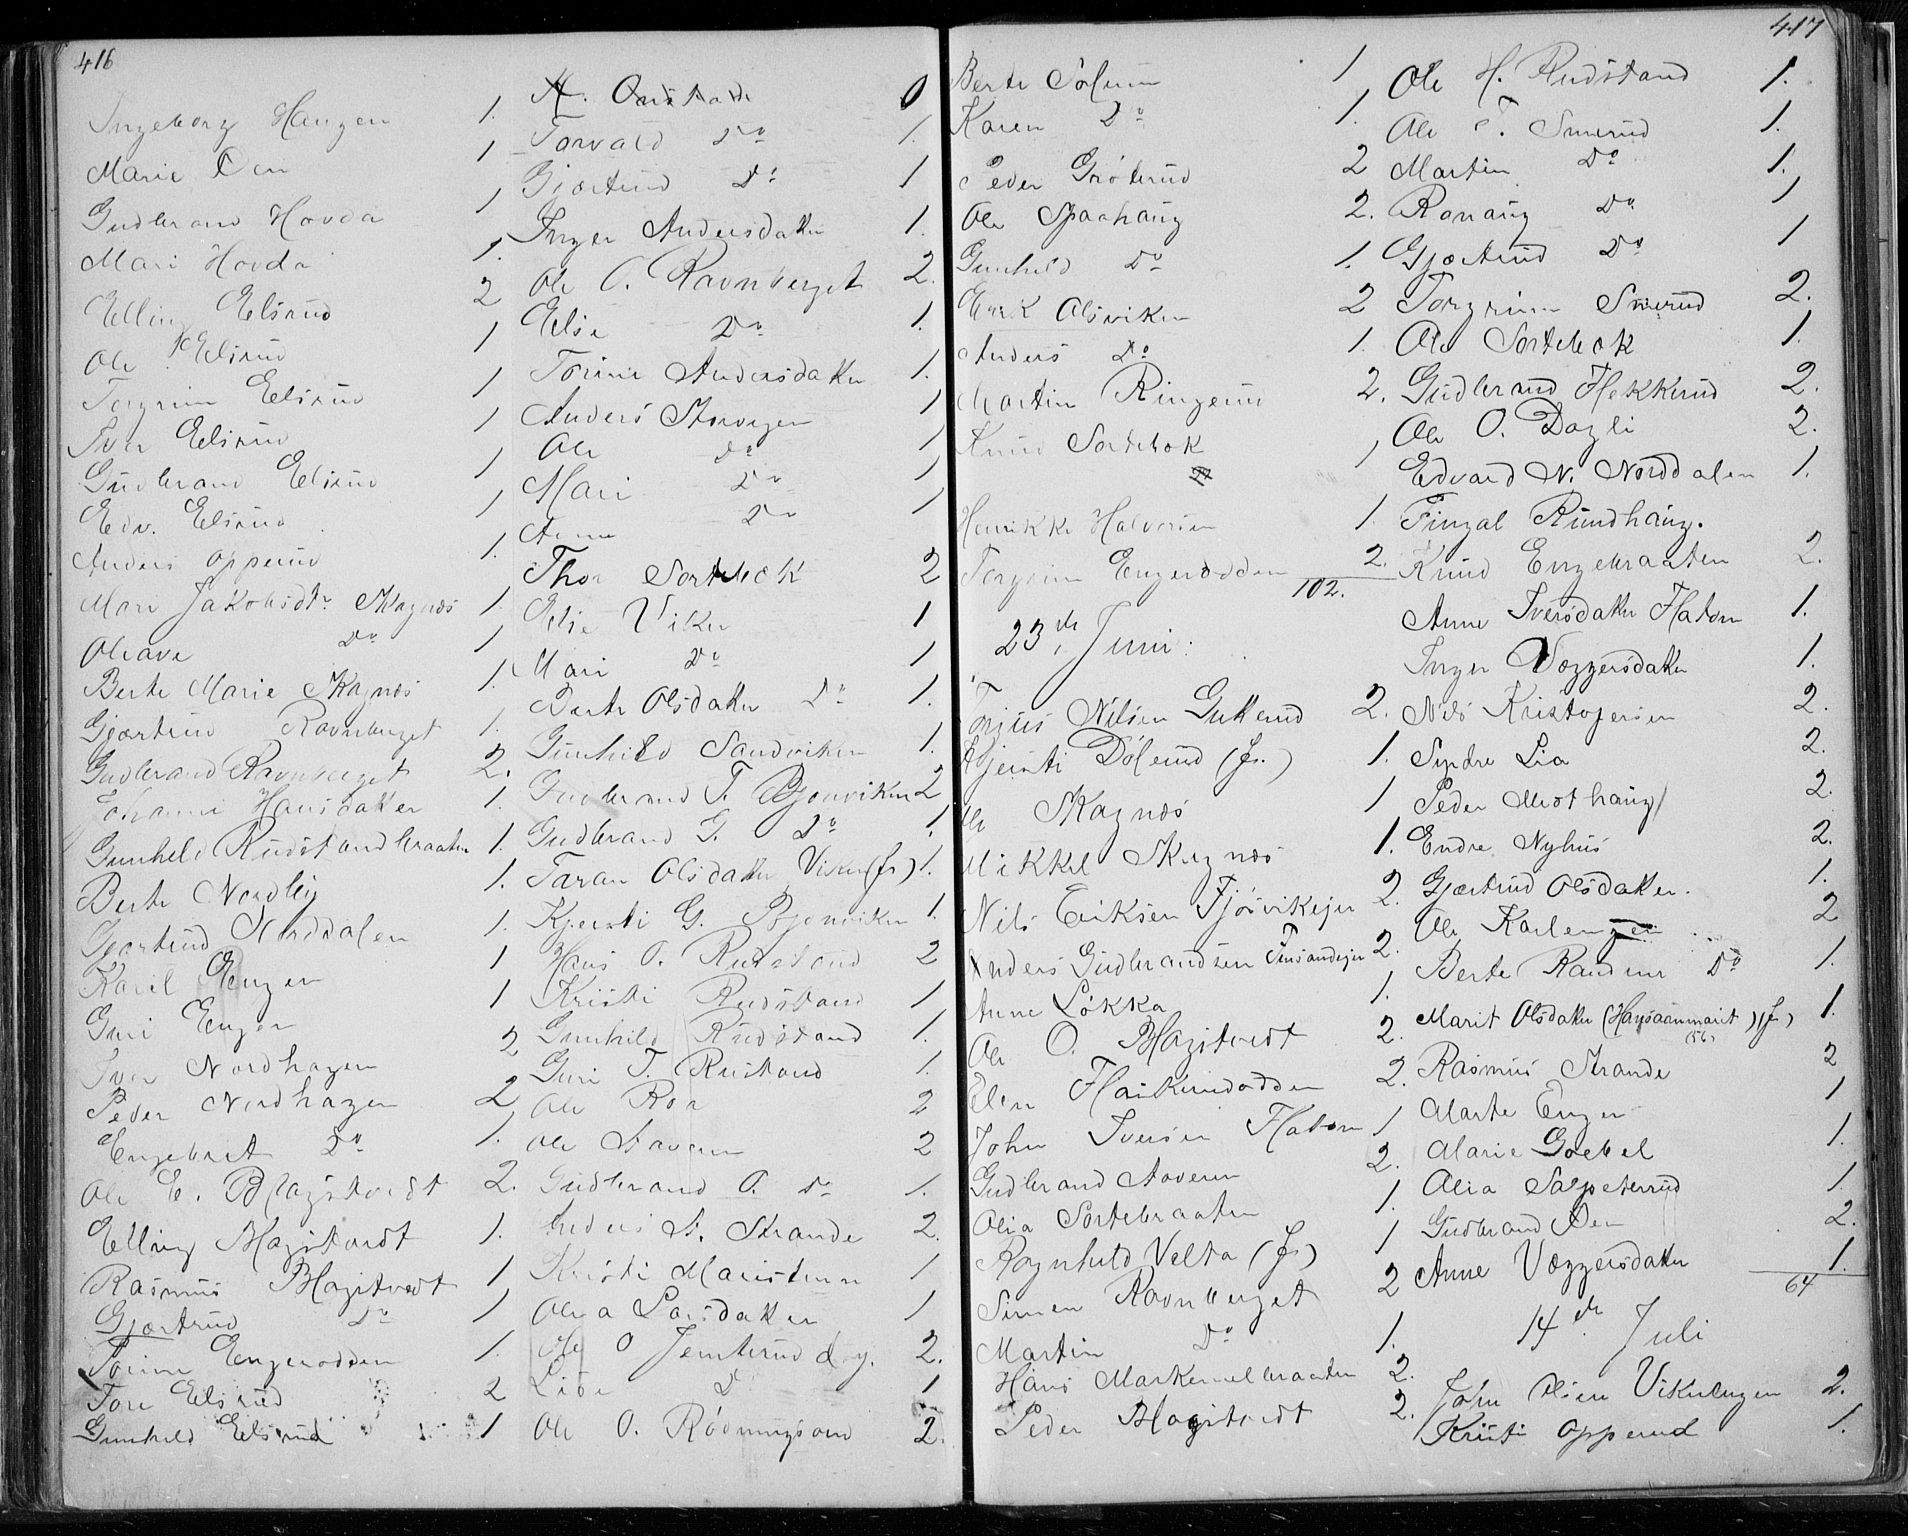 416
Ingeborg Haugen 1.
Marie Øen 1
Gudbrand Hovda 1
Mari Hovda 1.
Elling Elsrud 2
Ole Elsrud 1
Torgrim Elsrud 1
Iver Elsrud 1
Gudbrand Elsrud 1
Edv. Elsrud 1
Anders Opperud 1.
Mari Jakobsdtr Skagnæs 1.
Oleave Do 1
Berte Marie Skagnæs 1.
Gjærtrud Ravnberget 1.
Gudbrand Ravnberget 2.
Johanne Hansdatter 1.
Gunhild Rudstandbraaten 1.
Berte Nordby 1.
Gjærtrud Norddalen 1.
Karil Enger 1
Guri Enger 1
Iver Nordhagen 2
Peder Nordhagen 2
Engebret Do 1.
Ole E. Blagstvedt 2.
Elling Blagstvedt 1.
Rasmus Blagstvedt 1
Gjærtrud Do 1
Torine Engerodden 1.
Tore Elsrud 2
Gunhild Elsrud 1
A. Rudstand 0
Torvald Do 1.
Gjærtrud Do 1
Inger Andersdatter 1.
Ole O. Ravnberget 2.
Else Do 1.
Torine Andersdatter 1.
Anders Storvegen 1
Ole Do 1
Mari Do 1
Anne Do 1
Thor Sortebok 2
Else Viker 1
Mari Do 1
Berte Olsdatter Do 1.
Gunhild Sandviken 1.
Gudbrand T. Bjonviken 2
Gudbrand G. Do 1.
Taran Olsdatter Viker (fr) 1.
Kjersti G. Bjonviken 1.
Hans O. Rudstand 2
Kristi Rudstand 1
Gunhild Rudstand 1.
Guri T. Rustand 1.
Ole Roa 2
Ole Stavern 2
Gudbrand O. Do 1.
Anders A. Strande 2.
Kristi Maristuen 1
Olea Larsdatter 1
Ole O Jemterud d.y. 2.
Lise D 1
Ole O. Rødningsand 2.
417
Berte Solum 1
Karen Do 1.
Peder Grøterud 2
Ole Spaahaug 2.
Gunhild Do 1.
Erik Olsviken 2
Anders Do 1.
Martin Ringerud 2.
Knud Sortebok 1
Henrikke Halvorsen 1.
Torgrim Engerodden 2.
102.
23de Juni.
Torjus Nilsen Gukerud 2.
Kjersti Dølerud (fr.) 1.
Ole Skagnæs 1
Mikkel Skagnæs 1.
Nils Eriksen Fjøsvikejer 2.
Anders Gudbrandsen Tinsandejer 2.
Anne Løkka 1.
Ole O. Blagstvedt 2.
Elen Flaskerudodden 2.
John Iversen Flatom 1
Gudbrand Staveren 2.
Olia Sortebraaten 1.
Ragnhild Velta (fr) 1
Simen Ravnberget 2
Martin Do 1.
Hans Markerudbraaten 2.
Peder Blagstvedt 2.
Ole H. Rudstand 1.
Ole T. Smerud 1.
Martin Do 1.
Ronaug Do 1
Gjærtrud Do 1
Torgrim Smerud 2.
Ole Sortebok 1.
Gudbrand Hekkerud 2.
Ole O. Dagli 2.
Edvard N. Norddalen 1.
Fingal Rundhaug.
Knud Engebraaten 2.
Anne Iversdatter Flatom 1.
Inger Væggersdatter 1.
Nels Kristofersen 2.
Syndre Lia 2.
Peder Mosthaug 2.
Endre Nyhus 2.
Gjærtrud Olsdatter. 1.
Ole Karlengen 2
Berte Randine Do 1.
Marit Olsdatter (Haugsaanmarit) (fr) 1.
(56)
Rasmus Strande 2
Marte Enger 1
Marie Goebel 1.
Olia Salpeterrud 1.
Gudbrand Øen 2.
Anne Væggersdatter 1.
64
14de Juli
John Olsen Vikerengen 2.
Kristi Opperud 1.